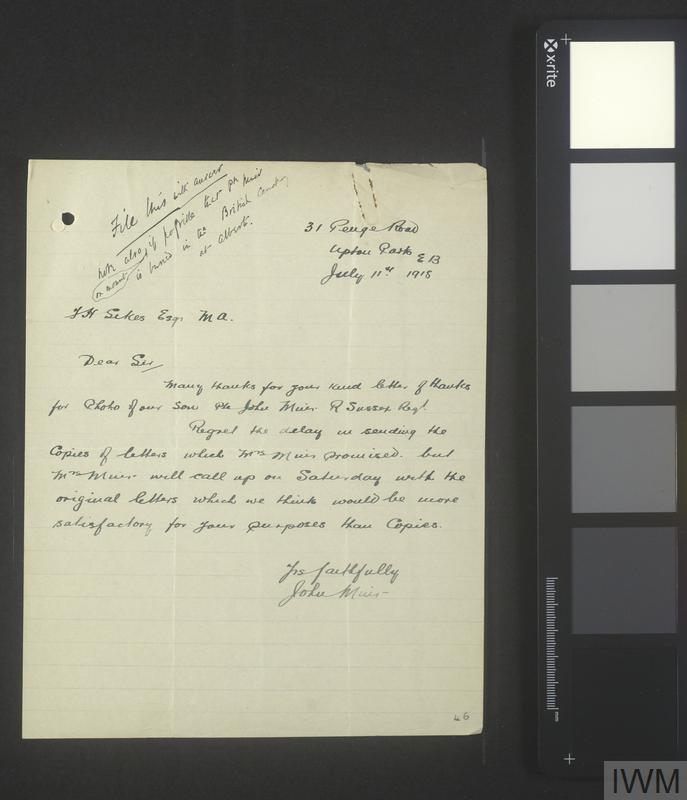 File this with answer
note also, if possible that Pte Muir
on mount
is buried in the British Cemetery
at Albert.
31 Penge Road
Upton Park E13
July 11th 1918
F H Sikes Esqr M A.
Dear Sir
Many thanks for your kind letter of thanks
for Photo of our Son Pte John Muir R Sussex Regt
Regret the delay in sending the
Copies of letters which Mrs Muir promised. but
Mrs Muir will call up on Saturday with the
original letters which we think would be more
satisfactory for your purposes than Copies.
Yrs faithfully
John Muir
46
x·rite
mm
IWM